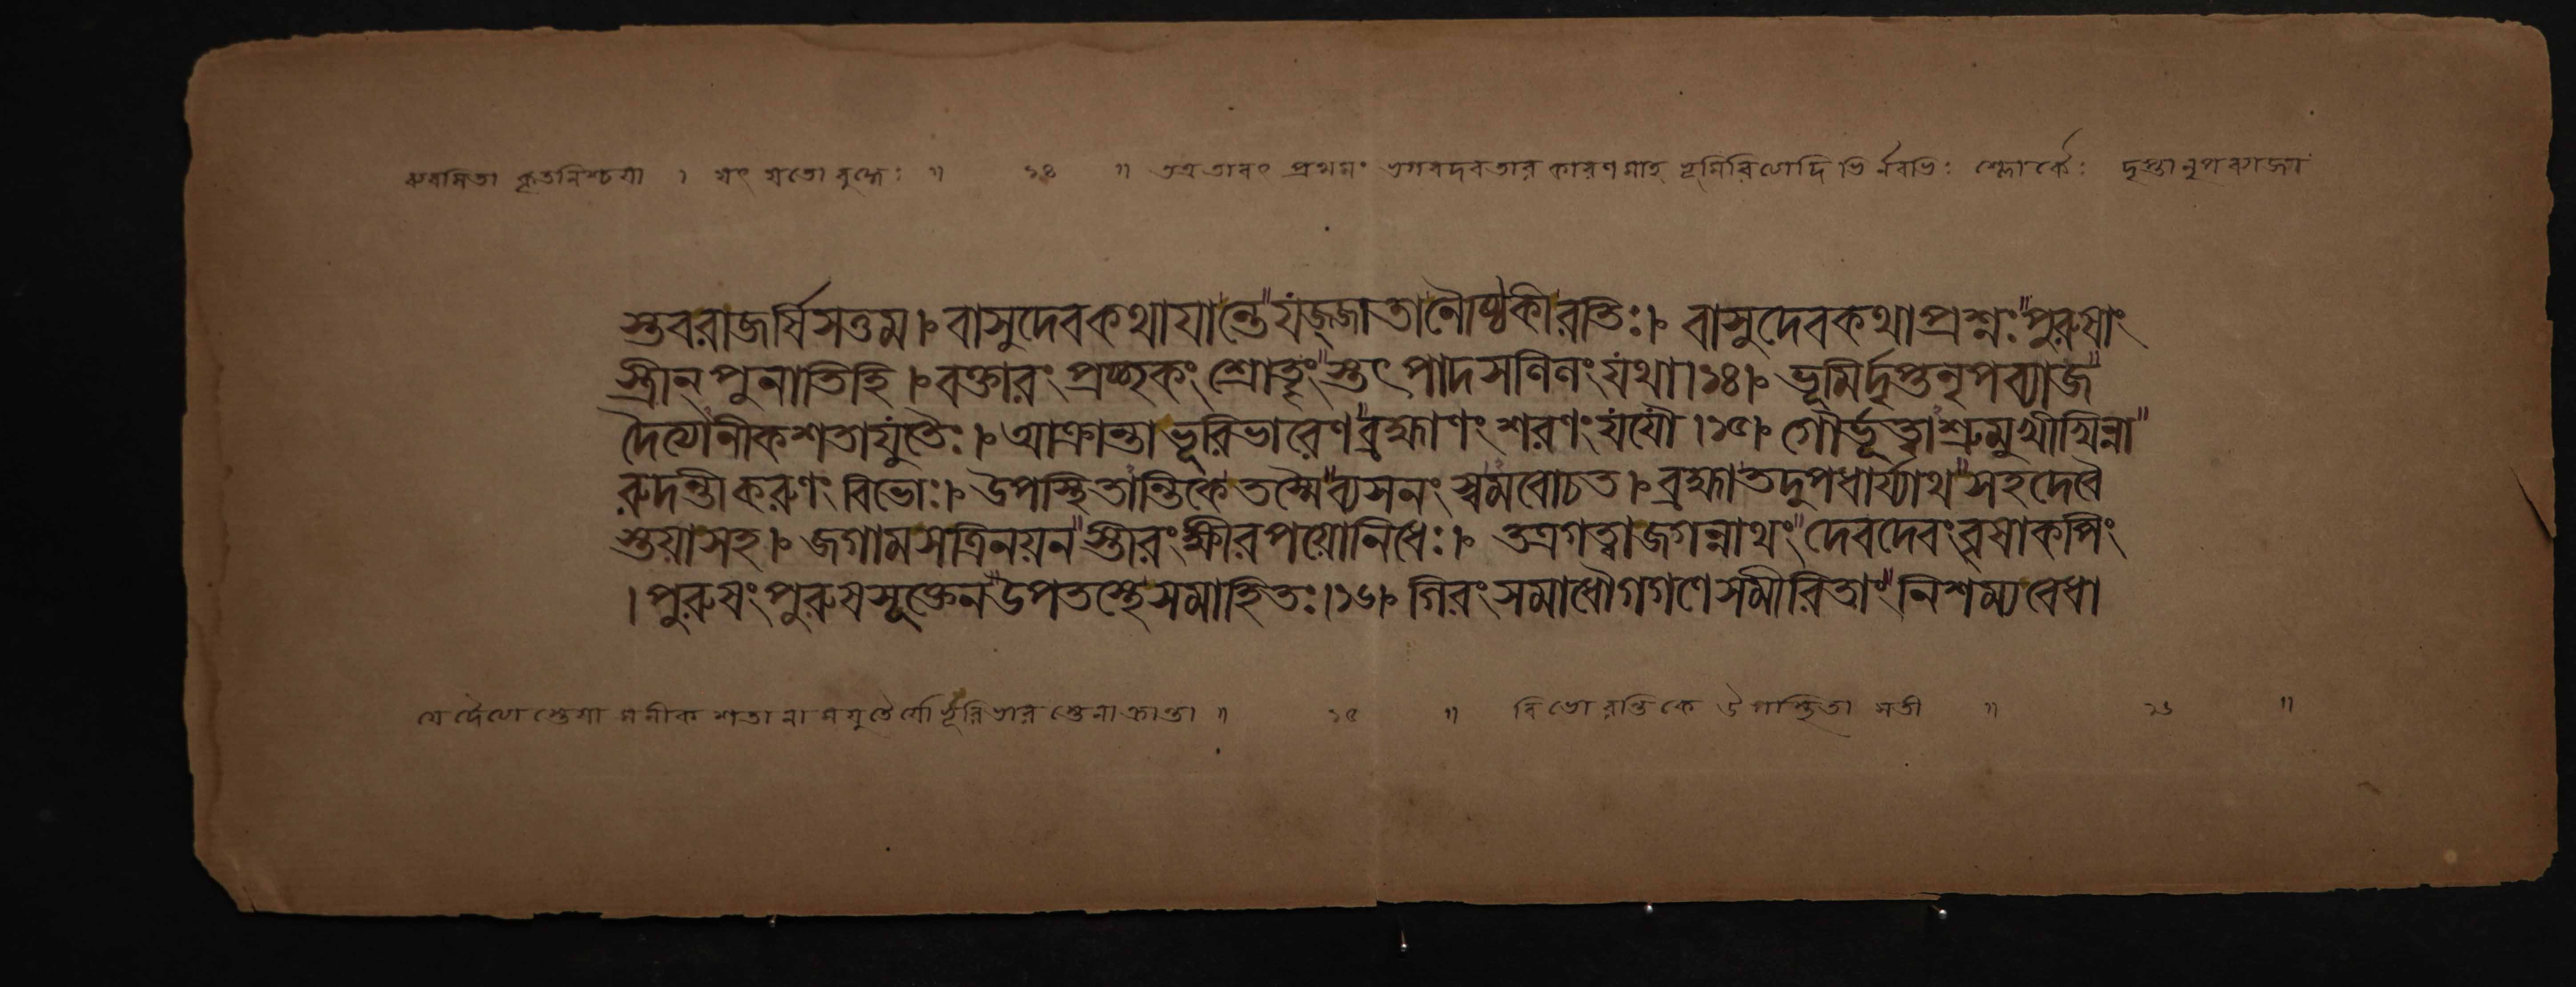 ব্যবসিতা কৃতনিশ্চয়া । যৎ যতো বুদ্ধেঃ ॥ ১৪ ॥ তত্র তাবৎ প্রথমং ভগবদবতার কারণমাহ ভূমিরিত্যাদিভির্নবভিঃ শ্লোকৈঃ দৃপ্তানৃপব্যাজা
স্তবরাজর্ষিসত্তম। বাসুদেবকথাযান্তে"যজ্জাতানৈষ্ঠিকীরতিঃ। বাসুদেবকথাপ্রশ্নঃ"পুরুষাং
স্ত্রীন্ পুনাতিহি। বক্তারং প্রচ্ছকং শ্রোতৃং"স্তৎপাদসলিলং যথা।১৪। ভূমির্দৃপ্তনৃপব্যাজ"
দৈত্যানীকশতাযুতৈঃ। আক্রান্তা ভূরিভারেণ"ব্রহ্মাণং শরণং যযৌ।১৫। গৌর্ভূত্বাশ্রুমুখীখিন্না"
রুদন্তীকরুণং বিভোঃ। উপস্থিতান্তিকে তস্মৈ"ব্যসনং স্বমবোচত। ব্রহ্মাতদুপধার্য্যাথ"সহদেবৈ
স্তয়াসহ। জগামসত্রিনয়ন"স্তীরং ক্ষীরপয়োনিধেঃ। তত্রগত্বাজগন্নাথং"দেবদেবংবৃষাকপিং
। পুরুষং পুরুষসূক্তেন"উপতস্থেসমাহিতঃ।১৬। গিরং সমাধৌগগণেসমীরিতাং"নিশম্যবেধা
যে দৈত্যাস্তেষা মনীক শতানা মযুতৈর্যো ভূরিভারস্তেনাক্রান্তা ॥ ১৫ ॥ বিভোরন্তিকে উপস্থিতা সতী ॥ ১৬ ॥